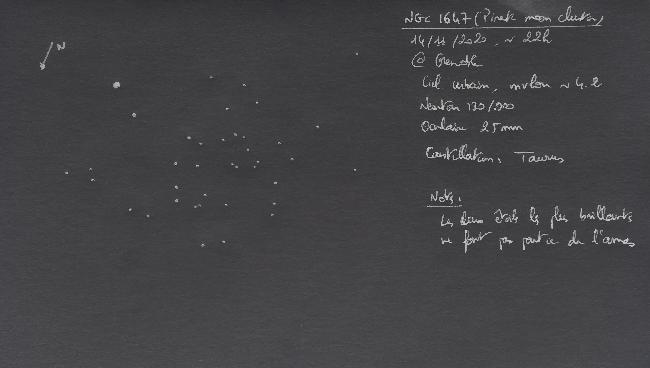 N
NGC 1647 (Pirate moon cluster)
14/11/2020, ~ 22h
@ Grenoble
Ciel urbain, mvlon ~ 4.2
Newton 130/900
Oculaire 25mm
Constellation: Taurus
Note:
Les deux étoiles les plus brillantes
ne font pas partie de l'amas